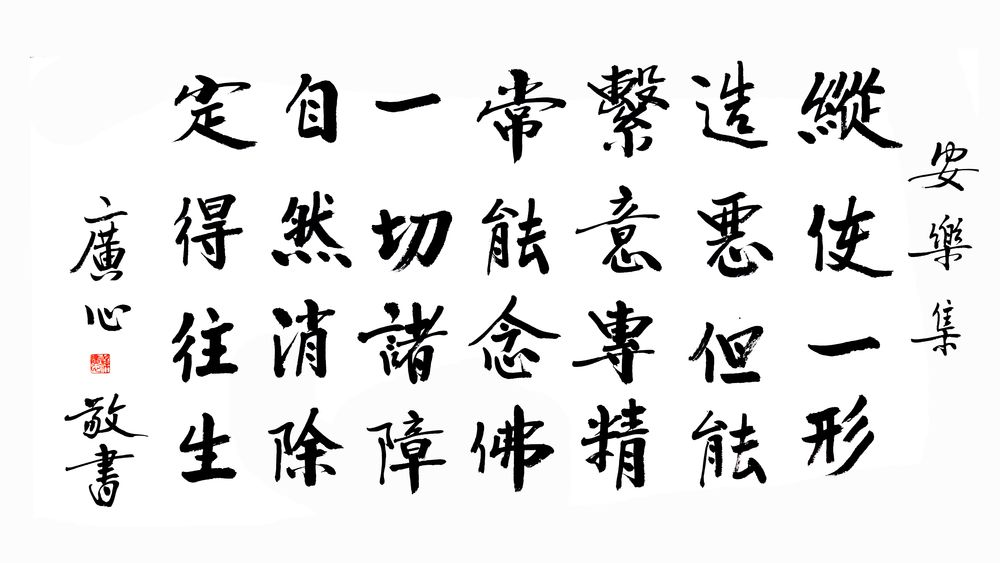 安樂集
縱使一形
造惡但能
繫意專精
常能念佛
一切諸障
自然消除
定得往生
廣心敬書